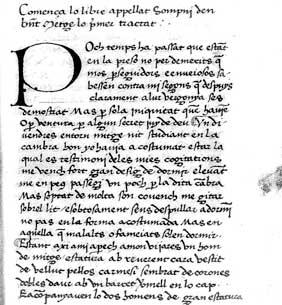 Comença lo libre appellat Sompni den
bñt Metge lo pmer tractat :
Poch temps ha passat que estāt
en la preso no per demerits q̄
mos pseguidors e enveiosos sa-
bessen contra mi segons q̄ despus
clarament a lur vergonya ses
demostrat Mas p sola iniquitat que havié
O p ventura p algun secret juy de deu Vn di-
uendres entorn mige nit studiant en la
cambra hon yo havia acostumat estar la
qual es testimoni deles mies cogitations
me vench fort gran desig de dormir e levāt
me en peus passegi vn poch p la dita cābra
Mas soptat de molta son covench me gitar
sobrel lit e sobtosament sens despullar adormi
no pas en la forma acostumada Mas en
aquella q̄ malalts o famejants solen dormir
Estant axi ami apech amon vijares vn hom
de mige estatura ab reverent cara vestit
de vellut pelos carmesi sembrat de corones
dobles daur ab vn barret vmell en lo cap
E acōpanyaven lo dos homens de gran estatura